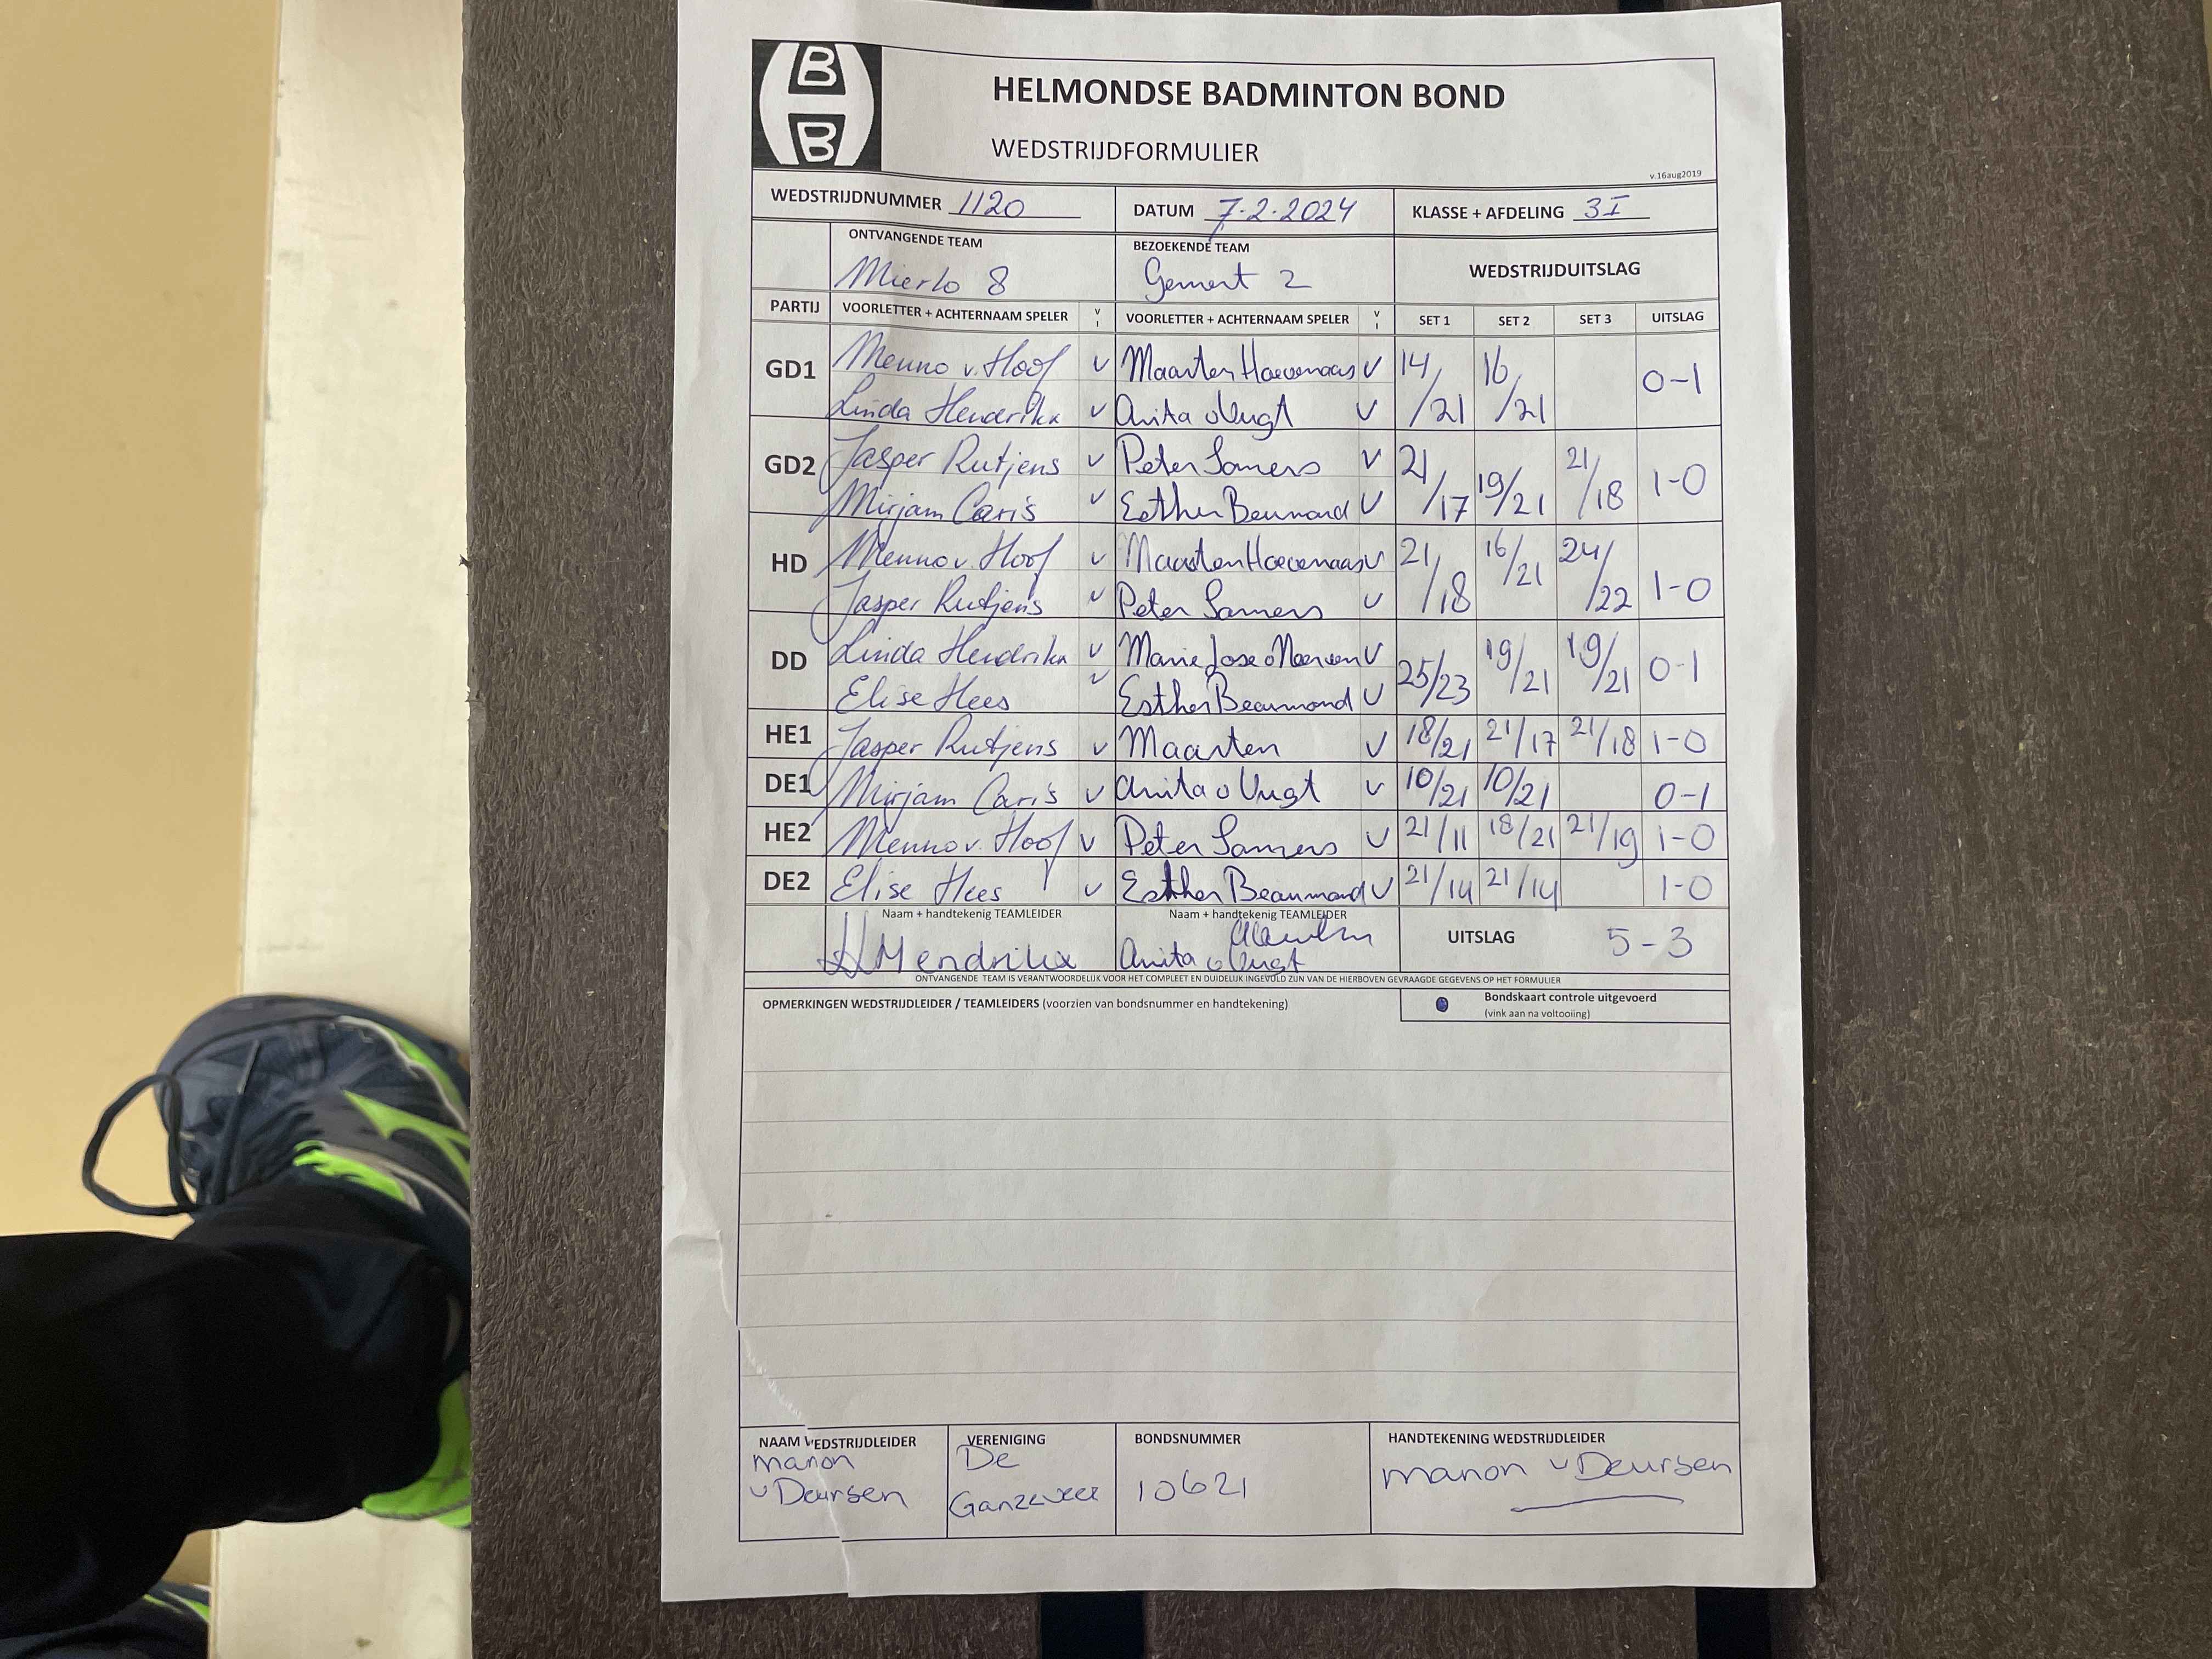 B
B
HELMONDSE BADMINTON BOND
WEDSTRIJDFORMULIER
v.16aug2019
WEDSTRIJDNUMMER 1120 DATUM 7-2-2024 KLASSE + AFDELING 3I
ONTVANGENDE TEAM BEZOEKENDE TEAM WEDSTRIJDUITSLAG
Mierlo 8 Gemert 2
PARTIJ VOORLETTER + ACHTERNAAM SPELER V I VOORLETTER + ACHTERNAAM SPELER V I SET 1 SET 2 SET 3 UITSLAG
GD1 Menno v. Hoof v Maarten Hoevenaars v 14/21 16/21 0-1
Linda Hendrikx v Anita v Vugt v
GD2 Jasper Rutjens v Peter Somers v 21/17 19/21 21/18 1-0
Mirjam Caris v Esther Beaumond v
HD Menno v. Hoof v Maarten Hoevenaars v 21/18 16/21 24/22 1-0
Jasper Rutjens v Peter Somers v
DD Linda Hendrikx v Marie Jose v 25/23 19/21 19/21 0-1
Elise Hees v Esther Beaumond v
HE1 Jasper Rutjens v Maarten v 18/21 21/17 21/18 1-0
DE1 Mirjam Caris v Anita v Vugt v 10/21 10/21 0-1
HE2 Menno v. Hoof v Peter Somers v 21/11 18/21 21/19 1-0
DE2 Elise Hees v Esther Beaumond v 21/14 21/14 1-0
Naam + handtekenig TEAMLEIDER Naam + handtekenig TEAMLEIDER UITSLAG 5-3
Hendrikx Anita v Vugt
ONTVANGENDE TEAM IS VERANTWOORDELIJK VOOR HET COMPLEET EN DUIDELIJK INGEVULD ZIJN VAN DE HIERBOVEN GEVRAAGDE GEGEVENS OP HET FORMULIER
OPMERKINGEN WEDSTRIJDLEIDER / TEAMLEIDERS (voorzien van bondsnummer en handtekening) Bondskaart controle uitgevoerd
(vink aan na voltooiing)
NAAM WEDSTRIJDLEIDER VERENIGING BONDSNUMMER HANDTEKENING WEDSTRIJDLEIDER
manon De 10621 manon v Deursen
v Deursen Ganzeveer